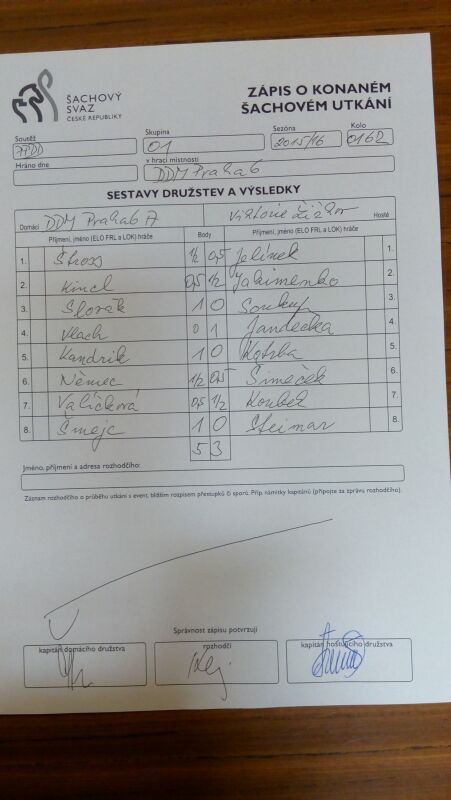 ŠACHOVÝ
SVAZ
ČESKÉ REPUBLIKY
ZÁPIS O KONANÉM
ŠACHOVÉM UTKÁNÍ
Soutěž Skupina Sezóna Kolo
PPDD 01 2015/16
Hráno dne v hrací místnosti
DDM Praha 6
SESTAVY DRUŽSTEV A VÝSLEDKY
Domácí DDM Praha 6 A Viktorie Žižkov Hosté
Příjmení, jméno (ELO FRL a LOK) hráče Body Příjmení, jméno (ELO FRL a LOK) hráče
1. Štross 1/2 0,5 Jelínek 1.
2. Kincl 0,5 1/2 Jakimenko 2.
3. Slovák 1 0 Soukup 3.
4. Vlach 0 1 Jandečka 4.
5. Kandrik 1 0 Kotrba 5.
6. Němec 1/2 0,5 Šimeček 6.
7. Vaļíčková 0,5 1/2 Koubek 7.
8. Šmejc 1 0 Steimar 8.
5 3
Jméno, příjmení a adresa rozhodčího:
Záznam rozhodčího o průběhu utkání s event. bližším rozpisem přestupků či sporů. Příp. námitky kapitánů (připojte za zprávu rozhodčího).
Správnost zápisu potvrzují
kapitán domácího družstva rozhodčí kapitán hostujícího družstva